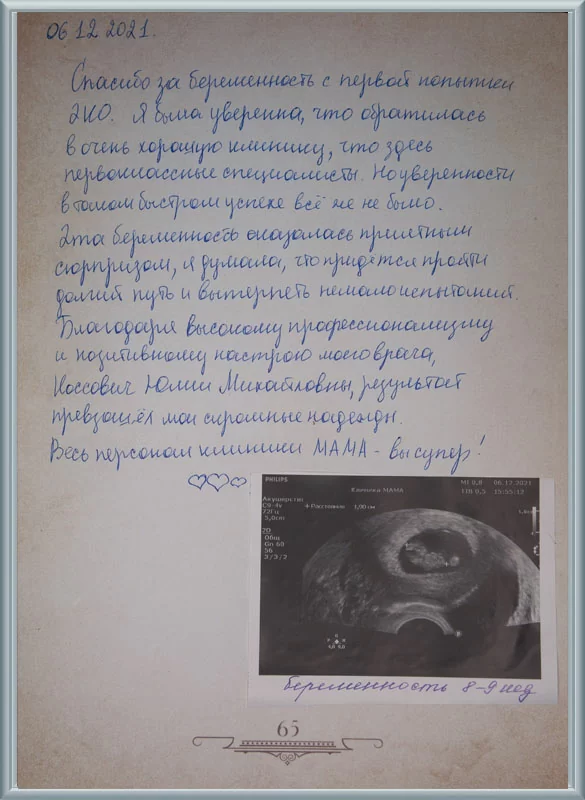 06.12.2021.
Спасибо за беременность с первой попытки
ЭКО. Я была уверенна, что обратилась
в очень хорошую клинику, что здесь
первоклассные специалисты. Но уверенности
в таком быстром успехе всё же не было.
Эта беременность оказалась приятным
сюрпризом, я думала, что придётся пройти
долгий путь и вытерпеть немало испытаний.
Благодаря высокому профессионализму
и позитивному настрою моего врача,
Коссович Юлии Михайловны, результат
превзошёл мои скромные надежды.
Весь персонал клиники МАМА - вы супер!
PHILIPS
MI 0,8 06.12.2021
Клиника МАМА
TIB 0,5 15:55:12
Акушерство
C9-4v
72Гц
5,0cm
+ Расстояние 1,90 см
2D
Общ
Gn 60
56
3/3/2
беременность 8-9 нед
65